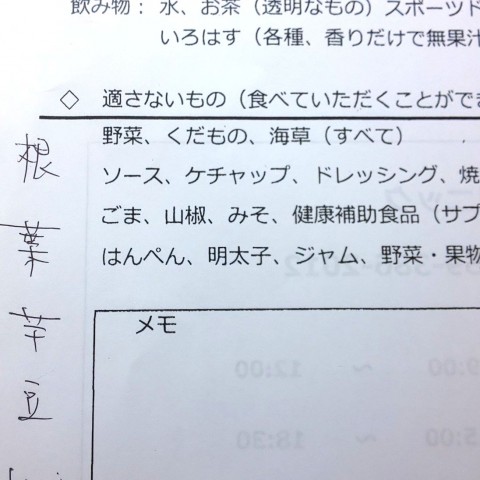 飲み物： 水、お茶（透明なもの）スポーツド
いろはす（各種、香りだけで無果汁
◇ 適さないもの（食べていただくことができ
野菜、くだもの、海草（すべて）
ソース、ケチャップ、ドレッシング、焼
ごま、山椒、みそ、健康補助食品（サプ
はんぺん、明太子、ジャム、野菜・果物
メモ
根
葉
芋
豆
12:00
18:30